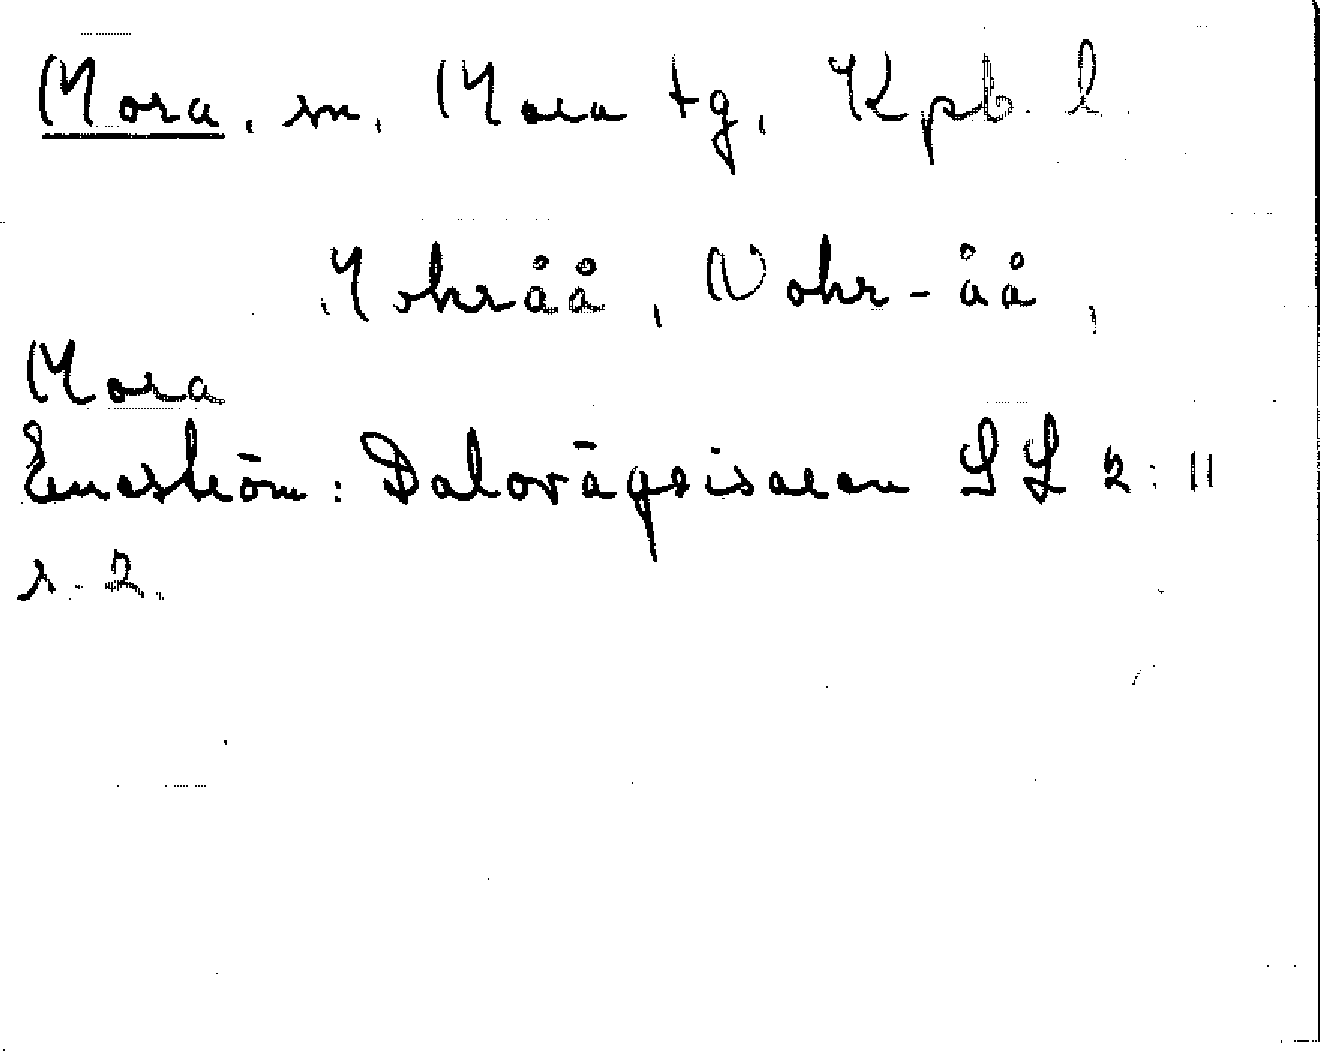 Mora, sn, Mora tg, Kpb. l.
Mohråå, Mohr-åå,
Mora
Eneström: Dalovägvisaren SL 2:11
s. 2.